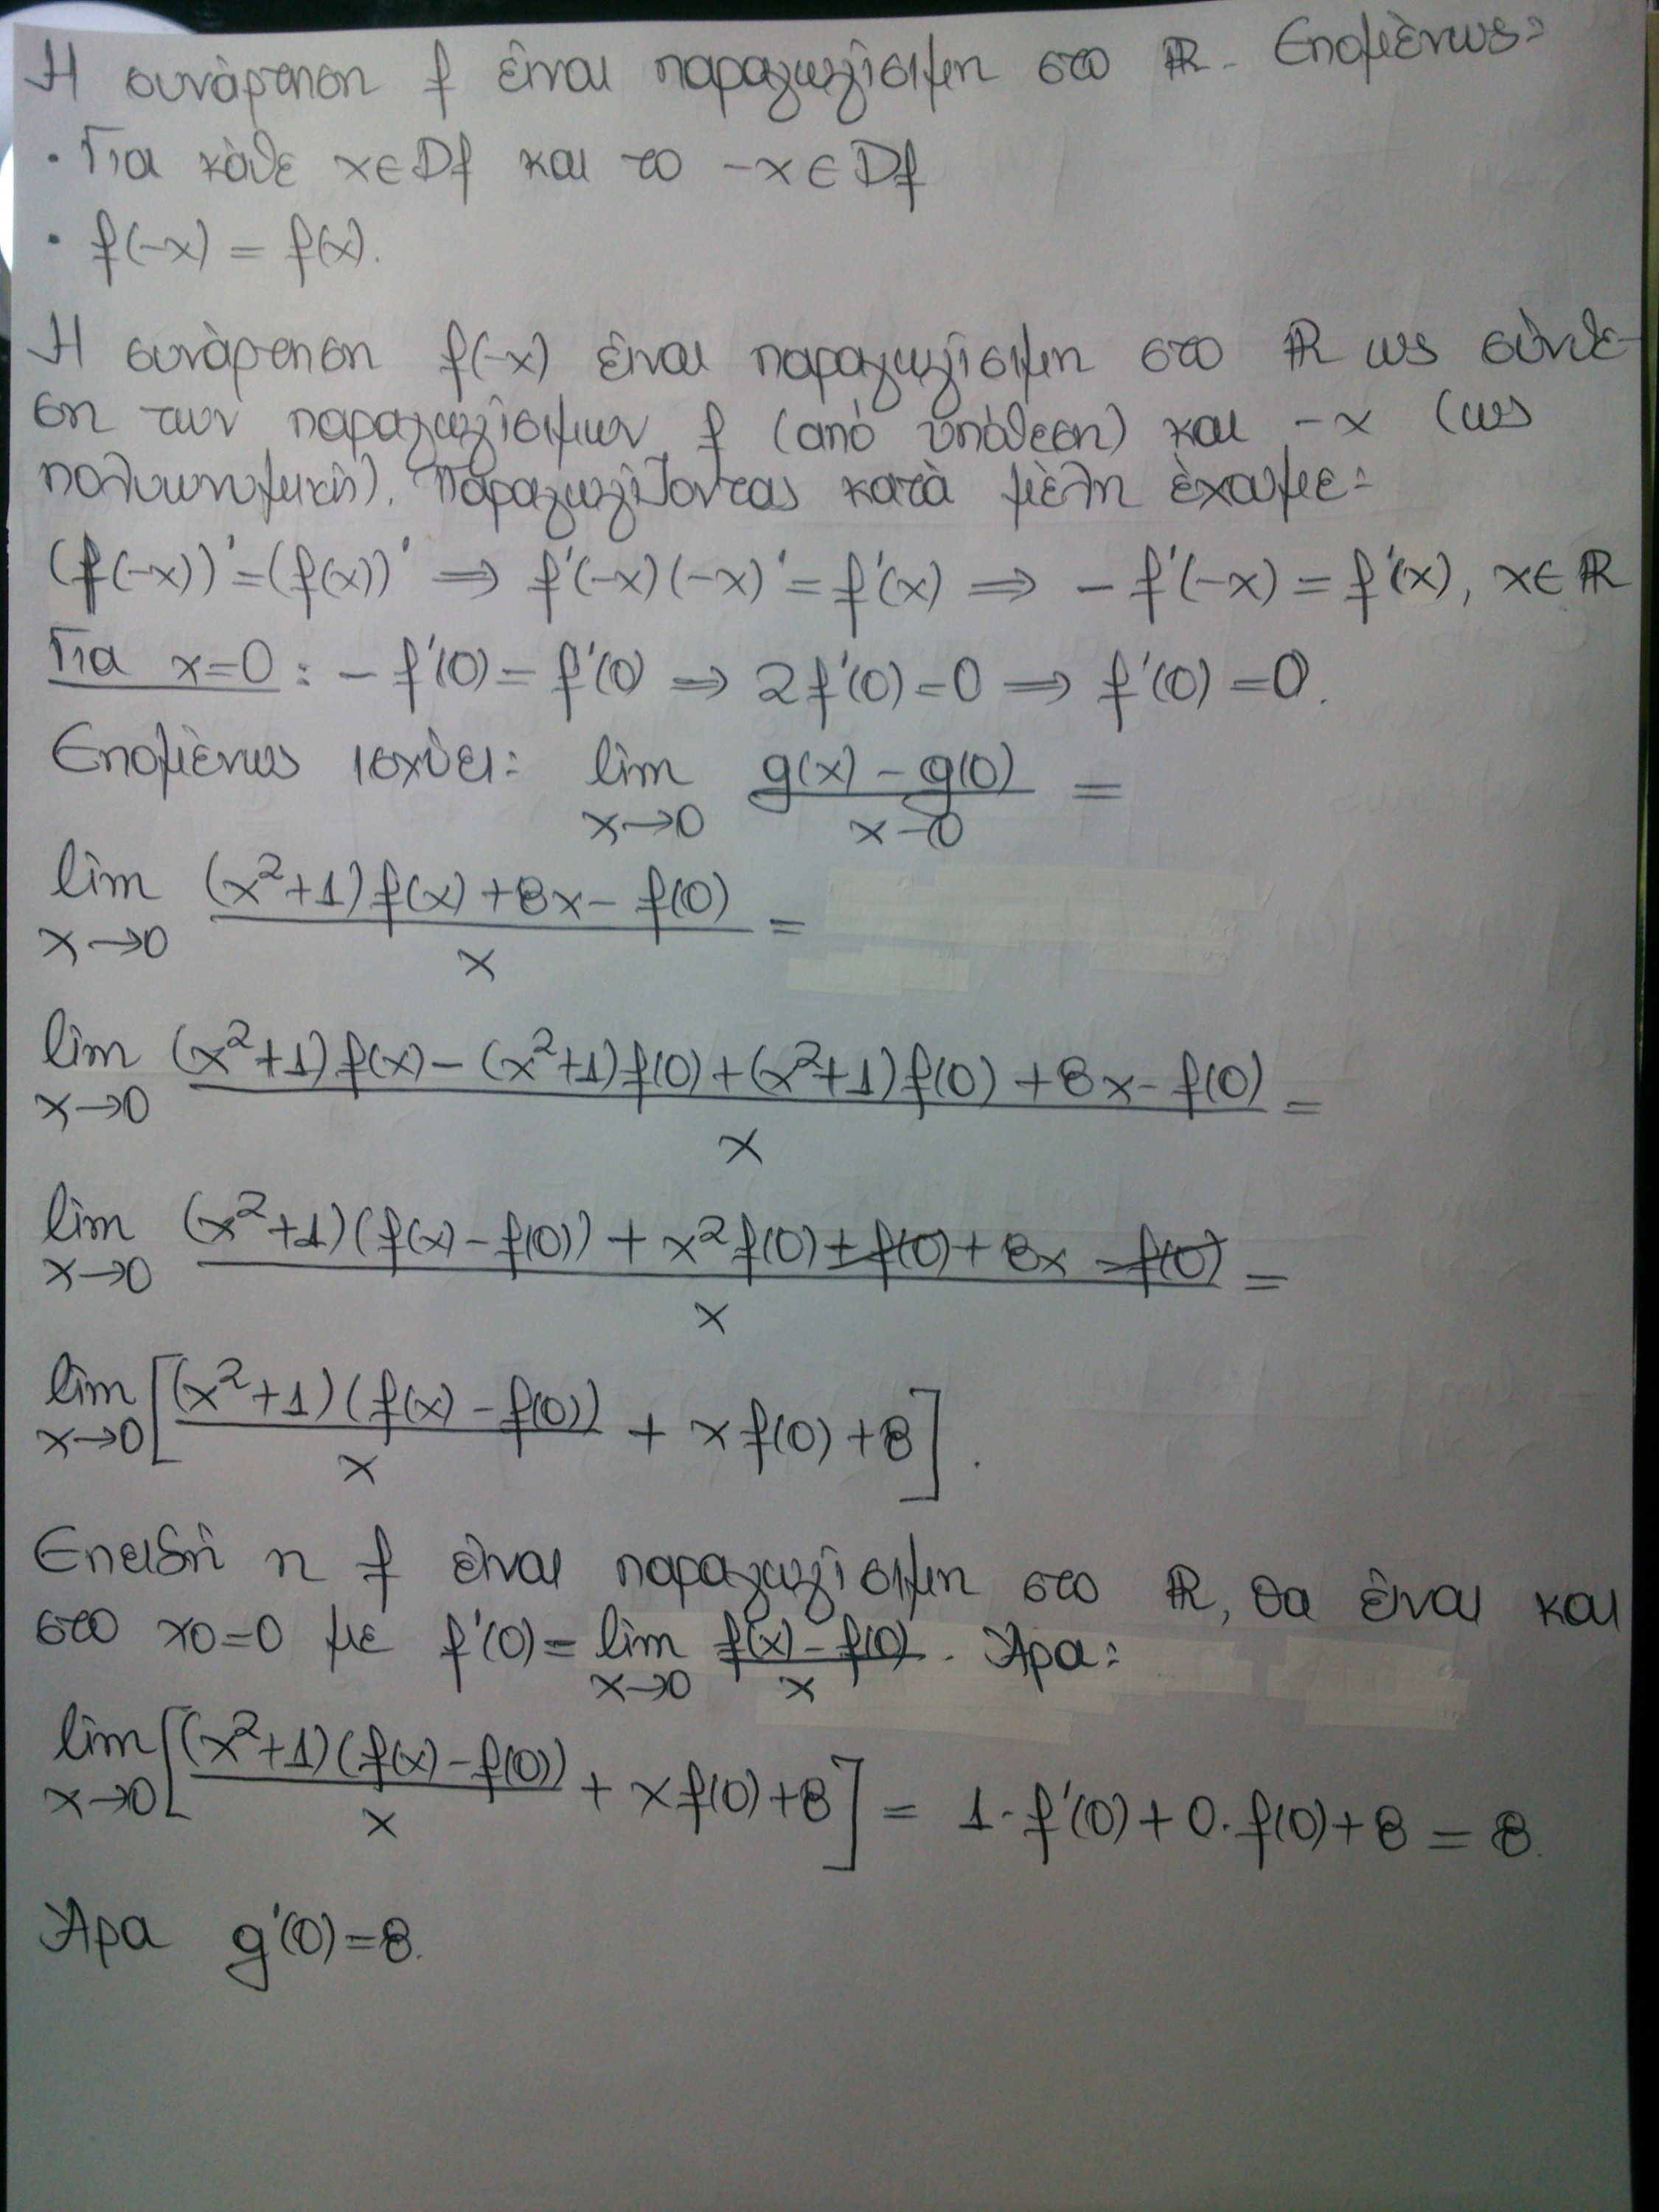 Η συνάρτηση f είναι παραγωγίσιμη στο ℝ. Επομένως:
• Για κάθε x∈Df και το -x∈Df
• f(-x) = f(x).
Η συνάρτηση f(-x) είναι παραγωγίσιμη στο ℝ ως σύνθε-
ση των παραγωγίσιμων f (από υπόθεση) και -x (ως
πολυωνυμική). Παραγωγίζοντας κατά μέλη έχουμε:
(f(-x))'=(f(x))' ⟹ f'(-x)(-x)'=f'(x) ⟹ -f'(-x)=f'(x), x∈ℝ
Για x=0: -f'(0)=f'(0) ⟹ 2f'(0)=0 ⟹ f'(0)=0.
Επομένως ισχύει: lim x→0 (g(x)-g(0))/(x-0) =
lim x→0 ((x²+1)f(x)+8x-f(0))/x =
lim x→0 ((x²+1)f(x)-(x²+1)f(0)+(x²+1)f(0)+8x-f(0))/x =
lim x→0 ((x²+1)(f(x)-f(0))+x²f(0)+f(0)+8x-f(0))/x =
lim x→0 [((x²+1)(f(x)-f(0)))/x + xf(0)+8].
Επειδή η f είναι παραγωγίσιμη στο ℝ, θα είναι και
στο x0=0 με f'(0)= lim x→0 (f(x)-f(0))/x. Άρα:
lim x→0 [((x²+1)(f(x)-f(0)))/x + xf(0)+8] = 1·f'(0)+0·f(0)+8=8.
Άρα g'(0)=8.